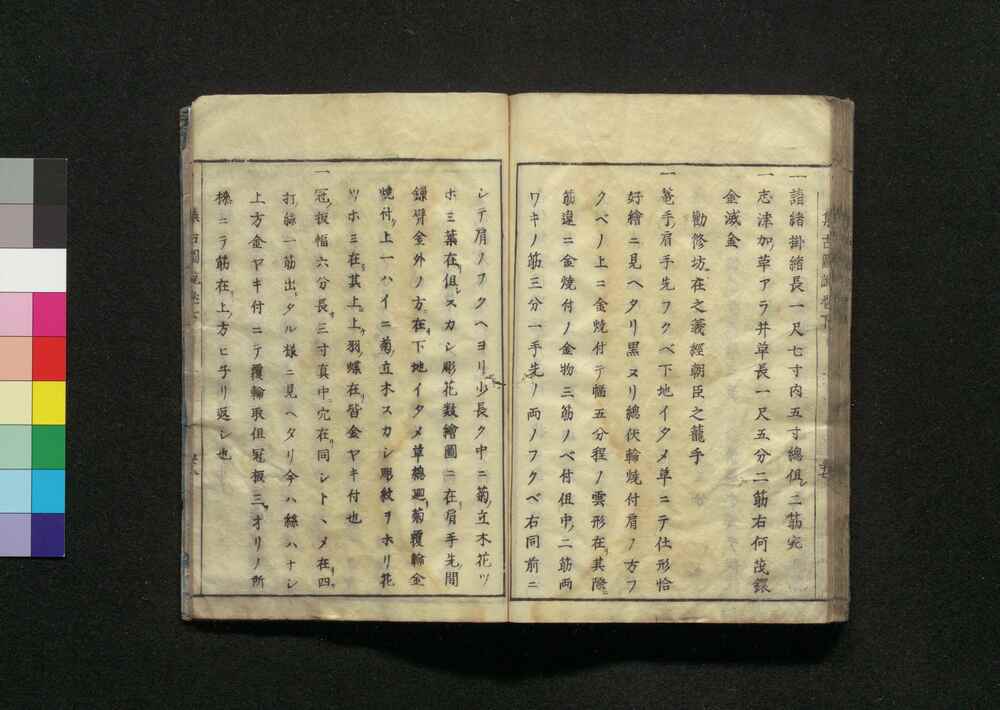 一諸緒掛緒長一尺七寸内五寸總但シ二筋宛
一志津加ノ草アラ并草長一尺五分二筋右何茂鐶
金滅金
勸修坊在之義經朝臣之籠手
一篭手肩手先フクベ下地イタメ草ニテ仕形恰
好繪ニ見ヘタリ黒スリ總伏輪焼付肩ノ方フ
クベノ上ニ金焼付テ幅五分程ノ雲形在リ其際ニ
筋違ニ金焼付ノ金物三筋ノベ付但中ノ二筋両
ワキノ筋三分一手先ノ両ノフクベ右同前ニ
シテ肩ノフクヘヨリ少長ク中ニ菊ノ立木花ツ
ホミ葉在但シスカシ彫花数繪圖ニ在肩手先間
鏁臂金外ノ方在下地イタメ草總廻リ菊覆輪金
焼付上一ハイニ菊ノ立木スカシ彫紋ヲホリ花
ツホミ在其上ニ上リ羽ノ蝶在皆金ヤキ付也
一冠ノ板幅六分長三寸真中ニ穴在同シトヽメ在四
打絲一筋出タル様ニ見ヘタリ今ハ絲ハナシ
上方金ヤキ付ニテ覆輪取但冠板三オリノ所
ニラ筋在上ノ方ヒチリ返シ也
集古圖説巻下